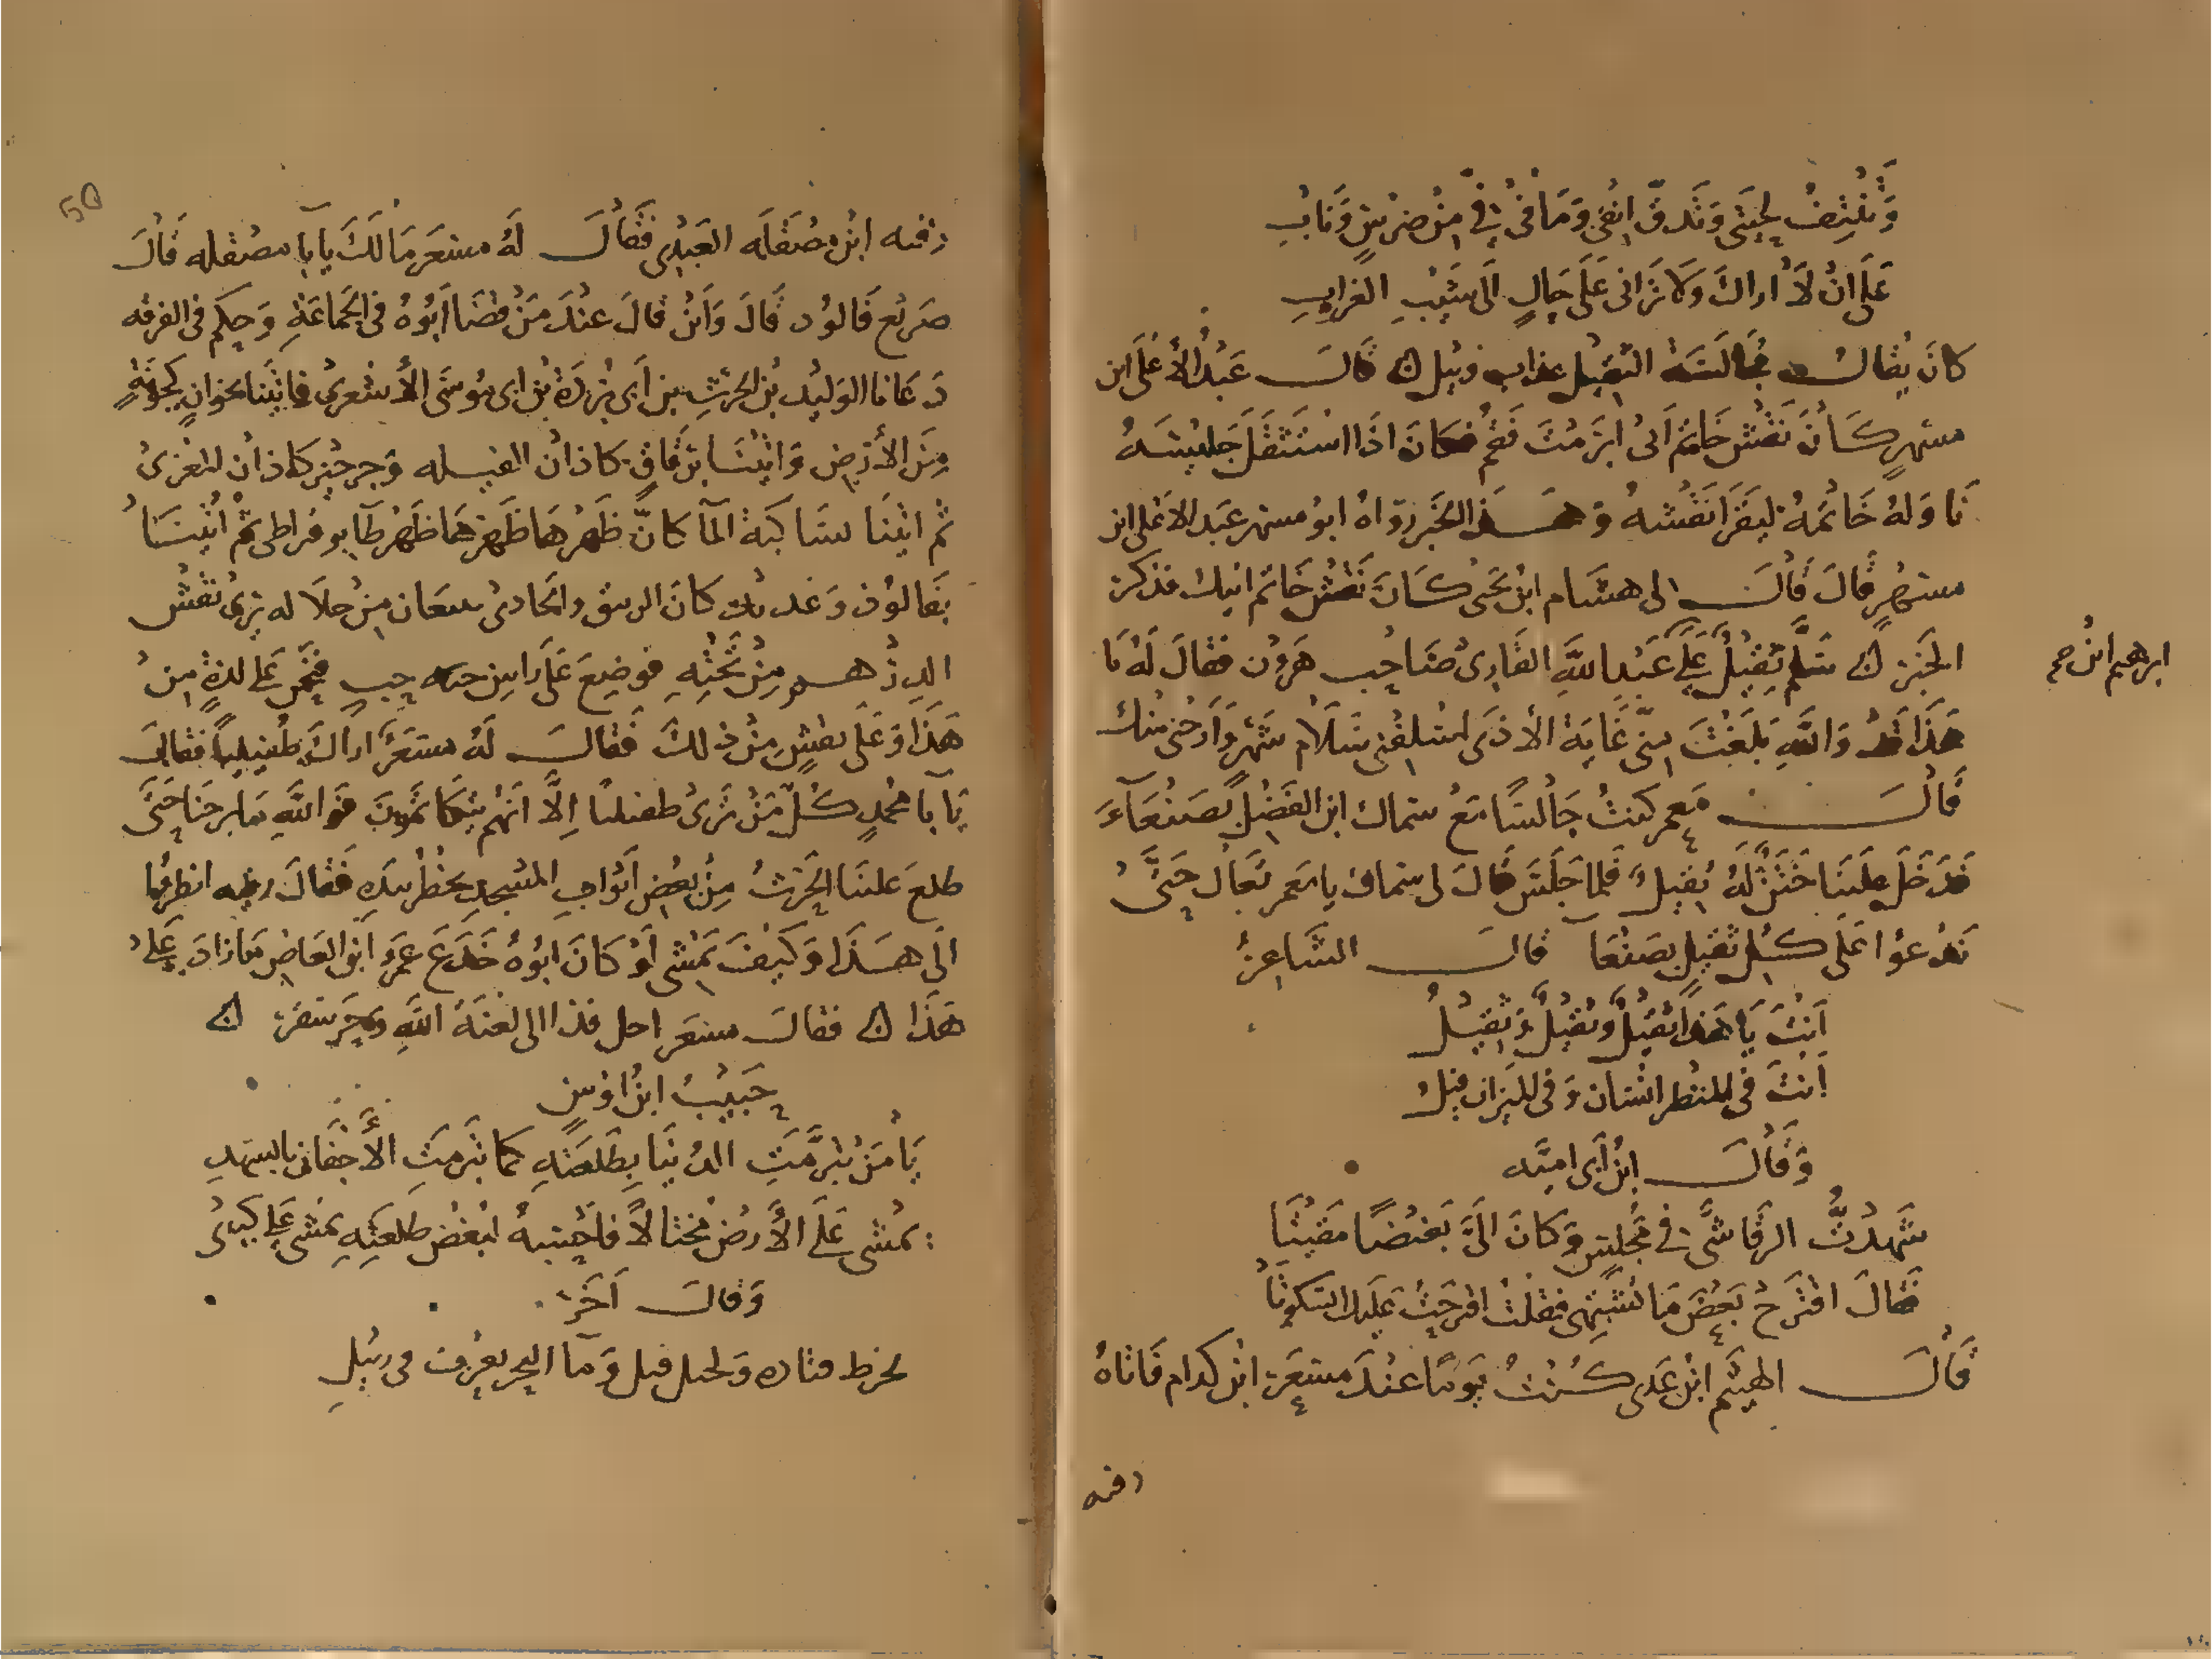 وَتُنْتِفُ لِحْيَتِي وَتَدقّ انفى وَمَا فى فىّ مِنْ ضِرْسٍ وَنَابِ
عَلَى انْ لاَ اراكَ وَلا ترَانى عَلَى حَالٍ الَى شَيْبِ الغرابِ
كانَ يُقالُ مجَالَسَةُ الثّقِيْل عذاب وبيل ۞ قَالَ عَبْدُ الأعْلَى ابن
مسْهرٍ كَانَ نَقْش خَاتم ابى ابرَمْتَ فَقُمْ فكانَ اذَا اسْتَثقَلَ جَلِيْسَهُ
نَاوَلهُ خَاتمهُ ليَقرَا نَقْشهُ وَهَذَا الخَبر رَوَاهُ ابوُ مسهر عَبد الاعْلى ابن
مسْهِرٍ قَالَ قَالَ لى هشَام ابن يَحيَى كَانَ نَقْش خَاتم ابيك فذكر
الخبَر ۞ سَلَّم ثَقِيْلٌ عَلى عَبْد اللَّهِ القَارِى صَاحِب هَرون فقَالَ لَهُ يَا
ابرهيم ابن
هَذَا قد وَاللَّهِ بَلَغْتَ مِنّى غَايَة الأذَى اسْلِفْنى سَلَام شَهرٍ وَارحْنى منك
قَالَ مَعمر كنتُ جَالسًا مَعْ سماك ابن الفَضْل بصَنْعَآءَ
فَدَخَلَ عَلَينَا خَتَنٌ لَهُ ثقِيلٌ فلمَا جَلَسَ قَالَ لى سماك يا مَعمر تعَال حَتَّى
نَدْعوُا عَلَى كُل ثقِيلٍ بصَنْعَا قالَ الشَاعِرُ
اَنْتَ يَا هَذَا ثقِيْلٌ وَثقِيْلٌ وَثقِيْلُ
اَنتَ فى المنْظر انْسَان وَفى الميزان فيلُ
وَقَالَ ابن اَبى اميَّه
شَهِدْتُ الرقَاشىَّ فى مَجْلِسٍ وَكانَ الىَّ بَغيْضًا مَقِيْتَا
فقَالَ اقتَرحْ بَعْضَ مَا تَشْتَهى فقلتُ اقترحتُ عَلَيك السكوتَا
قَالَ الهَيْثم ابن عَدى كُنْتُ يَومًا عنْدَ مسْعَر ابن كدام فَاتاهُ
رقبه
رقبه ابن مصْقَلَه العَبْدِى فقَالَ لَهُ مسْعَر مَا لكَ يا بَا مصْقله قَالَ
صَرِيْع فَالوُد قَالَ وَاَيْنَ قَالَ عنْدَ مَنْ قضَا اَبُوُهُ فى الجَماعَةِ وَحكِم فى الفرقه
دَعَانا الوَليْد بْن الحَرْثِ بن اَبى بُرْدَة بْن ابى مُوُسَى الأشعرى فاتيْنَا بخوانٍ كجَوْبَةٍ
مِنَ الأرْضِ وَاتِيْنَا برُقَاقٍ كاذان الفيله وَجرجيْر كاذان المعْزى
ثم اتيْنَا بسَاكنَة المآ كانّ ظَهْرهَا ظَهْر ثمْ اُتيْنَا
بفَالوُد
الدِرْهم مِنْ تَحْتِهِ فوضِعَ عَلَى رَاسِ
هَذَا وَعَلَى بعْضٍ مِنْ ذلكَ فقَالَ لَهُ مسْعَر اراكَ طُفَيْلِيًا فقالَ
يَا بَا مُحَمدٍ كُلّ مَنْ تَرَى طفيلىًا اِلَّا انَهُم يتَكاتَمُونَ فوَاللَّهِ مَا برحنَا حَتَّى
طلعَ عَلينَا الحَرْثُ مِنْ بعْضِ اَبْوَابِ المَسْجِدِ يخْطرُ بيَدِهِ فقَالَ رقبه انظرُوا
الَى هَذَا وَكَيْفَ يَمْشى اَوْ كَانَ ابوُهُ خَدَعَ عَمْرو ابن العَاصِ مَا زادَ عَلى
هَذَا ۞ فقالَ مسْعَر الى لعْنَةِ اللَّهِ وَحر سَقرْ ۞
حَبيْبُ ابن اوْسٍ
يَا مَنْ تبَرَّمَتِ الدُنيَا بِطَلعَتِهِ كمَا تبَرمَتِ الأَجفَانُ بالسَهَدِ
يَمْشى عَلَى الأرضِ مختَالاً فاَحْسِبهُ لبُغْضِ طَلعَتِهِ يَمْشى عَلى كبِدى
وَقالَ آخَرُ